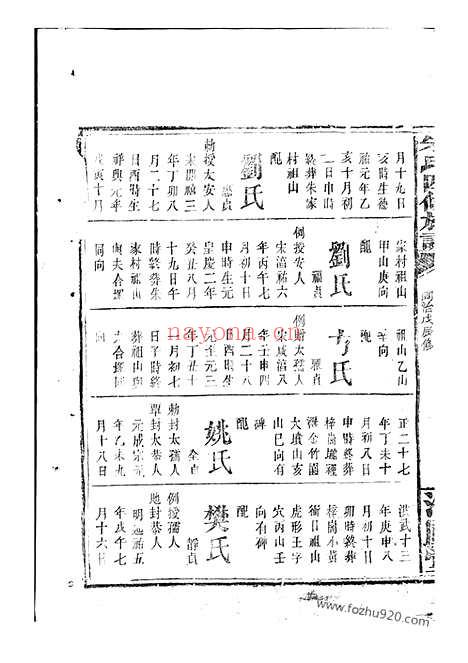 月十九日
亥時生德
祐元年乙
亥十月初
二日申時
終葬朱家
村祖山
劉氏
惠貞
勅授太安人
宋開禧三
年丁卯八
月二十七
日酉時生
祥興元年
戊寅十月
家村祖山
甲山庚向
配
劉氏
福貞
例授安人
宋淳祐六
年丙午七
月初十日
申時生元
皇慶二年
癸丑八月
十九日午
時終葬朱
家村祖山
與夫合塚
同向
祖山乙山
辛向
配
氏
雅貞
例贈太孺人
宋咸淳八
年壬申四
月二十八
日酉時生
元至元三
年丁丑
一月初七
日子時終
葬祖山與
夫合塚
同向
正二十七
年丁未十
月初八日
申時終葬
梓崗
金竹園
大墳山亥
山巳向有
碑
配
姚氏
全貞
勅封太孺人
單封恭人
元成宗元
年乙未九
月十八日
洪武十三
年庚申八
月初十日
卯時終葬
梓崗小黃
衝日祖山
虎形土字
穴丙山壬
向有碑
配
樊氏
靜貞
例授孺人
地封恭人
延祐五
年戊午七
月十六日
氏四修族譜
同治戊辰
nayona.cn
www.fozhu920.com